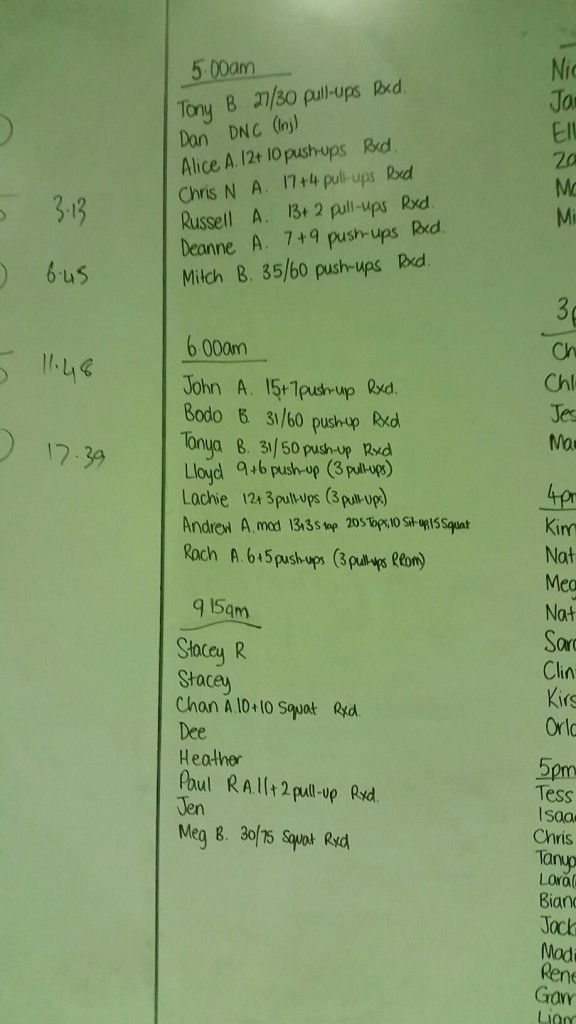 3.13
6.45
11.48
17.39
5.00am
Tony B. 27/30 pull-ups Rxd.
Dan DNC (Inj)
Alice A. 12+10 push-ups Rxd.
Chris N A. 17+4 pull-ups Rxd
Russell A. 13+2 pull-ups Rxd.
Deanne A. 7+9 push-ups Rxd.
Mitch B. 35/60 push-ups Rxd.
6.00am
John A. 15+7 push-up Rxd.
Bodo B. 31/60 push-up Rxd
Tanya B. 31/50 push-up Rxd
Lloyd 9+6 push-up (3 pull-ups)
Lachie 12+3 pull-ups (3 pull-ups)
Andrew A. mod 13+3 Sit-up, 15 Squat
Rach A. 6+5 push-ups (3 pull-ups)
9 15am
Stacey R
Stacey
Chan A. 10+10 Squat Rxd.
Dee
Heather
Paul R A. 11+2 pull-up Rxd.
Jen
Meg B. 30/75 Squat Rxd
Nic
Ja
Ell
Mi
3p
Ch
Chl
Jes
Ma
4pm
Kim
Nat
Meg
Nat
Sara
Clin
Kirs
Orla
5pm
Tess
Isaa
Chris
Tanya
Bian
Jack
Madi
Rene
Garr
Liam